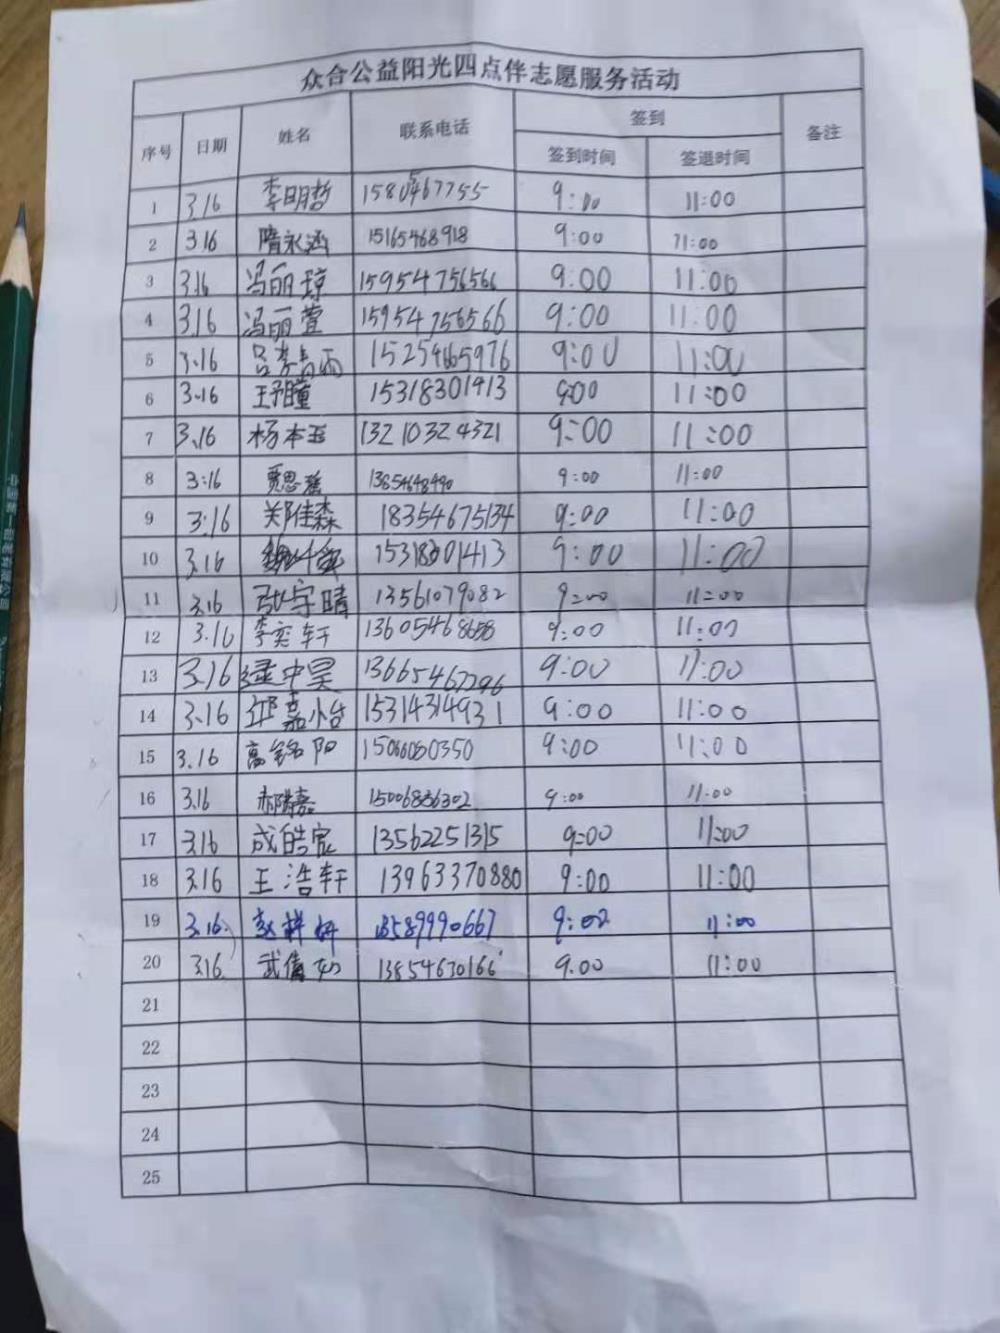 众合公益阳光四点伴志愿服务活动
序号 日期 姓名 联系电话 签到 备注
签到时间 签退时间
1 3.16 李明哲 9:00 11:00
2 3.16 隋永涵 15165468918 9:00 11:00
3 3.16 冯丽琼 15954756566 9:00 11:00
4 3.16 冯丽萱 15954756566 9:00 11:00
5 3.16 15254665976 9:00 11:00
6 3.16 15318301413 9:00 11:00
7 3.16 杨本玉 13210324321 9:00 11:00
8 3:16 贾思瑶 9:00 11:00
9 3:16 郑佳森 18354675134 9:00 11:00
10 3.16 15318301413 9:00 11:00
11 3.16 张宇晴 13561079082 9=00 11=00
12 3.16 李奕轩 9:00 11:00
13 3.16 中昊 13665467296 9:00 11:00
14 3.16 15314314931 9:00 11:00
15 3.16 高铭阳 9:00 11:00
16 3.16 9:00 11:00
17 3.16 成皓宸 13562251315 9:00 11:00
18 3.16 王浩轩 13963370880 9:00 11:00
19 3.16 赵祥妍 13589990667 9:02 11:00
20 3.16 武倩如 13854670166 9.00 11:00
21
22
23
24
25